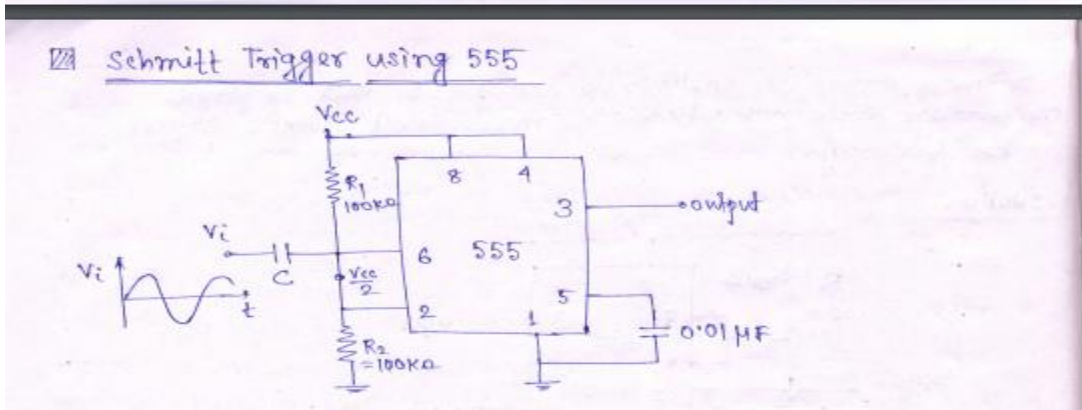 Schmitt Trigger using 555
Vcc
R1
100KΩ
8
4
3
output
Vi
C
6
555
Vi
t
Vcc/2
2
5
1
0.01 µF
R2
=100KΩ